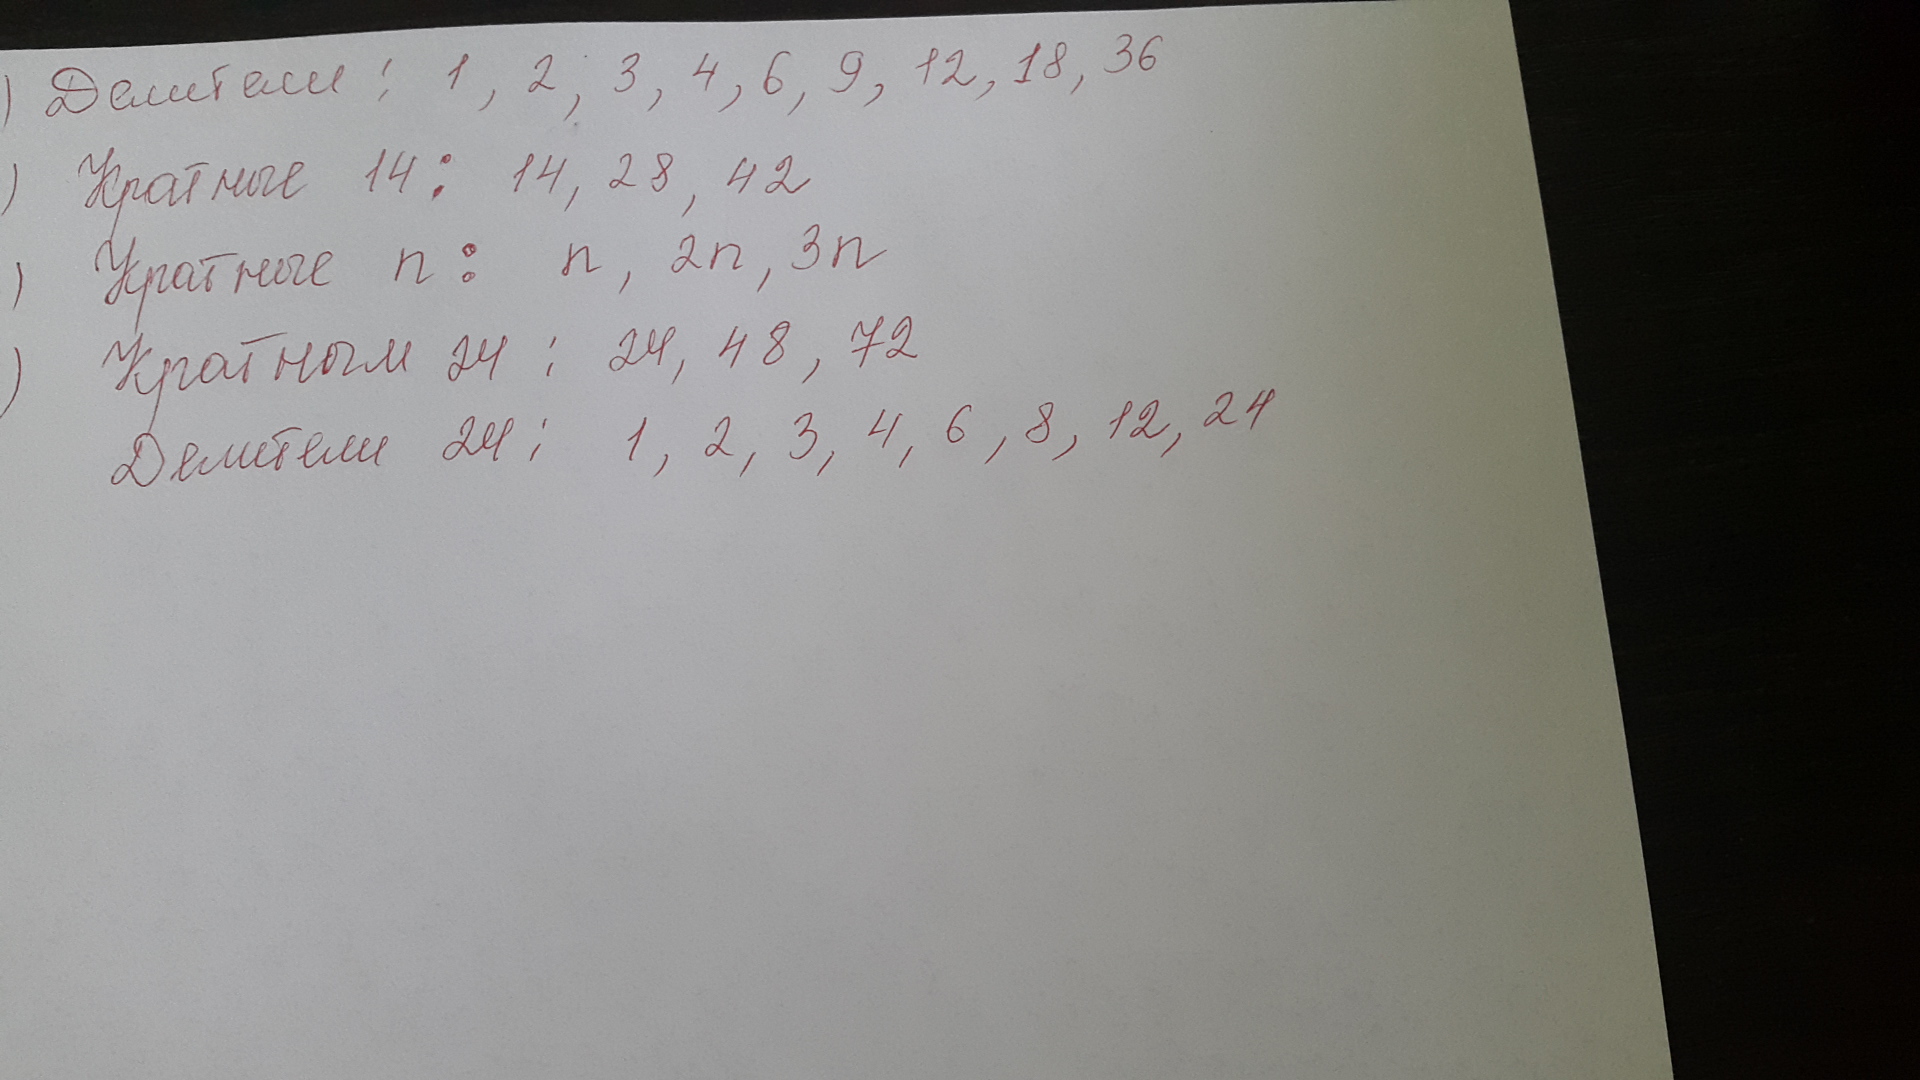 ) Делители: 1, 2, 3, 4, 6, 9, 12, 18, 36
) Кратные 14: 14, 28, 42
) Кратные n: n, 2n, 3n
) Кратным 24: 24, 48, 72
Делители 24: 1, 2, 3, 4, 6, 8, 12, 24